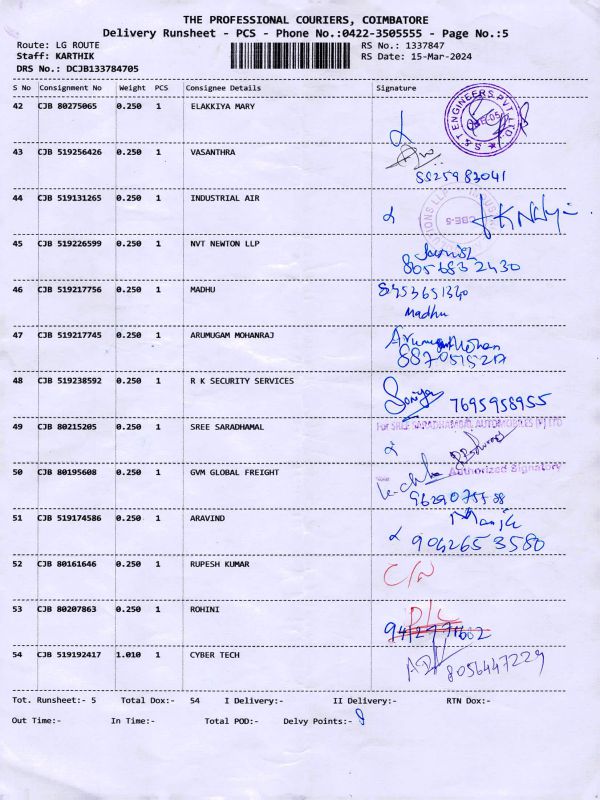 THE PROFESSIONAL COURIERS, COIMBATORE
Delivery Runsheet - PCS - Phone No.:0422-3505555 - Page No.:5
Route: LG ROUTE RS No.: 1337847
Staff: KARTHIK RS Date: 15-Mar-2024
DRS No.: DCJB133784705
S No Consignment No Weight PCS Consignee Details Signature
42 CJB 80275065 0.250 1 ELAKKIYA MARY
S & T ENGINEERS PVT. LTD.
43 CJB 519256426 0.250 1 VASANTHRA
8825983041
44 CJB 519131265 0.250 1 INDUSTRIAL AIR
CBE-5
45 CJB 519226599 0.250 1 NVT NEWTON LLP
8056832430
46 CJB 519217756 0.250 1 MADHU 8453651340
Madhu
47 CJB 519217745 0.250 1 ARUMUGAM MOHANRAJ Arumugam Mohan
48 CJB 519238592 0.250 1 R K SECURITY SERVICES
Soniya 7695958955
49 CJB 80215205 0.250 1 SREE SARADHAMAL For SREE SARADHAMBAL AUTOMOBILES (P) LTD
Authorized Signatory
50 CJB 80195608 0.250 1 GVM GLOBAL FREIGHT
51 CJB 519174586 0.250 1 ARAVIND
9042653580
52 CJB 80161646 0.250 1 RUPESH KUMAR
53 CJB 80207863 0.250 1 ROHINI
54 CJB 519192417 1.010 1 CYBER TECH
8056447229
Tot. Runsheet:- 5 Total Dox:- 54 I Delivery:- II Delivery:- RTN Dox:-
Out Time:- In Time:- Total POD:- Delvy Points:- 8